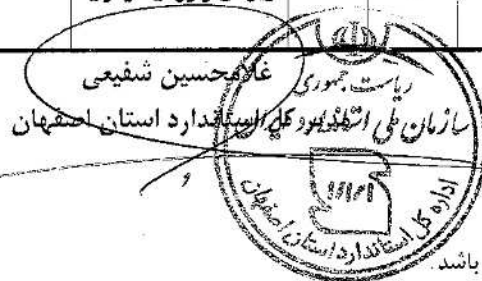 غلامحسین شفیعی
مدیر کل استاندارد استان اصفهان
ریاست جمهوری
سازمان ملی استاندارد ایران
اداره کل استاندارد استان اصفهان
باشد.